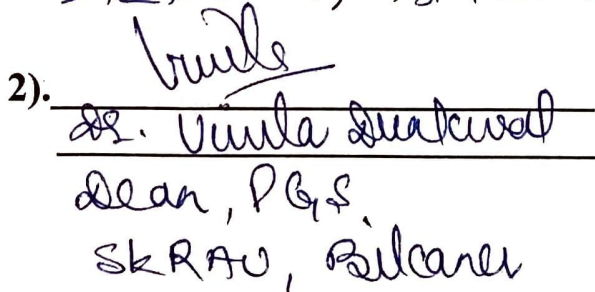 2).
Dr. Vimla Dunkwal
Dean, PGS
SKRAU, Bikaner